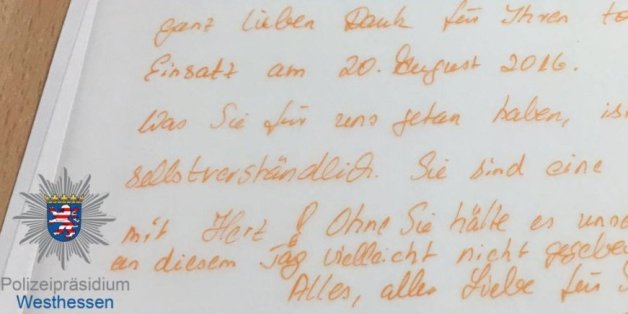 ganz lieben Dank für Ihren to
Einsatz am 20. August 2016.
Was Sie für uns getan haben, is
selbstverständlich. Sie sind eine
mit Herz! Ohne Sie hätte es uns
an diesem Tag vielleicht nicht gegebe
Alles, alles Liebe für S
Polizeipräsidium
Westhessen